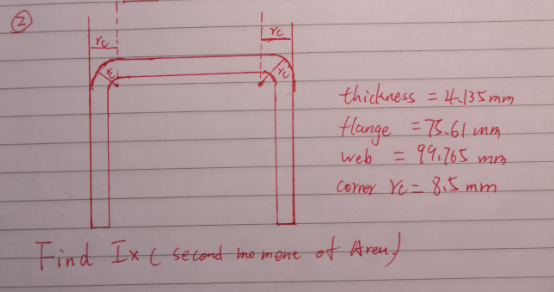 ②
rc rc
rc rc
thickness = 4.135 mm
flange = 75.61 mm
web = 99.765 mm
corner rc = 8.5 mm
Find Ix ( second moment of Area)